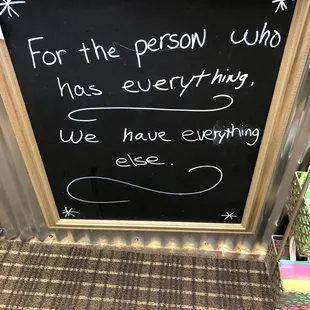 For the person who
has everything,
We have everything
else.